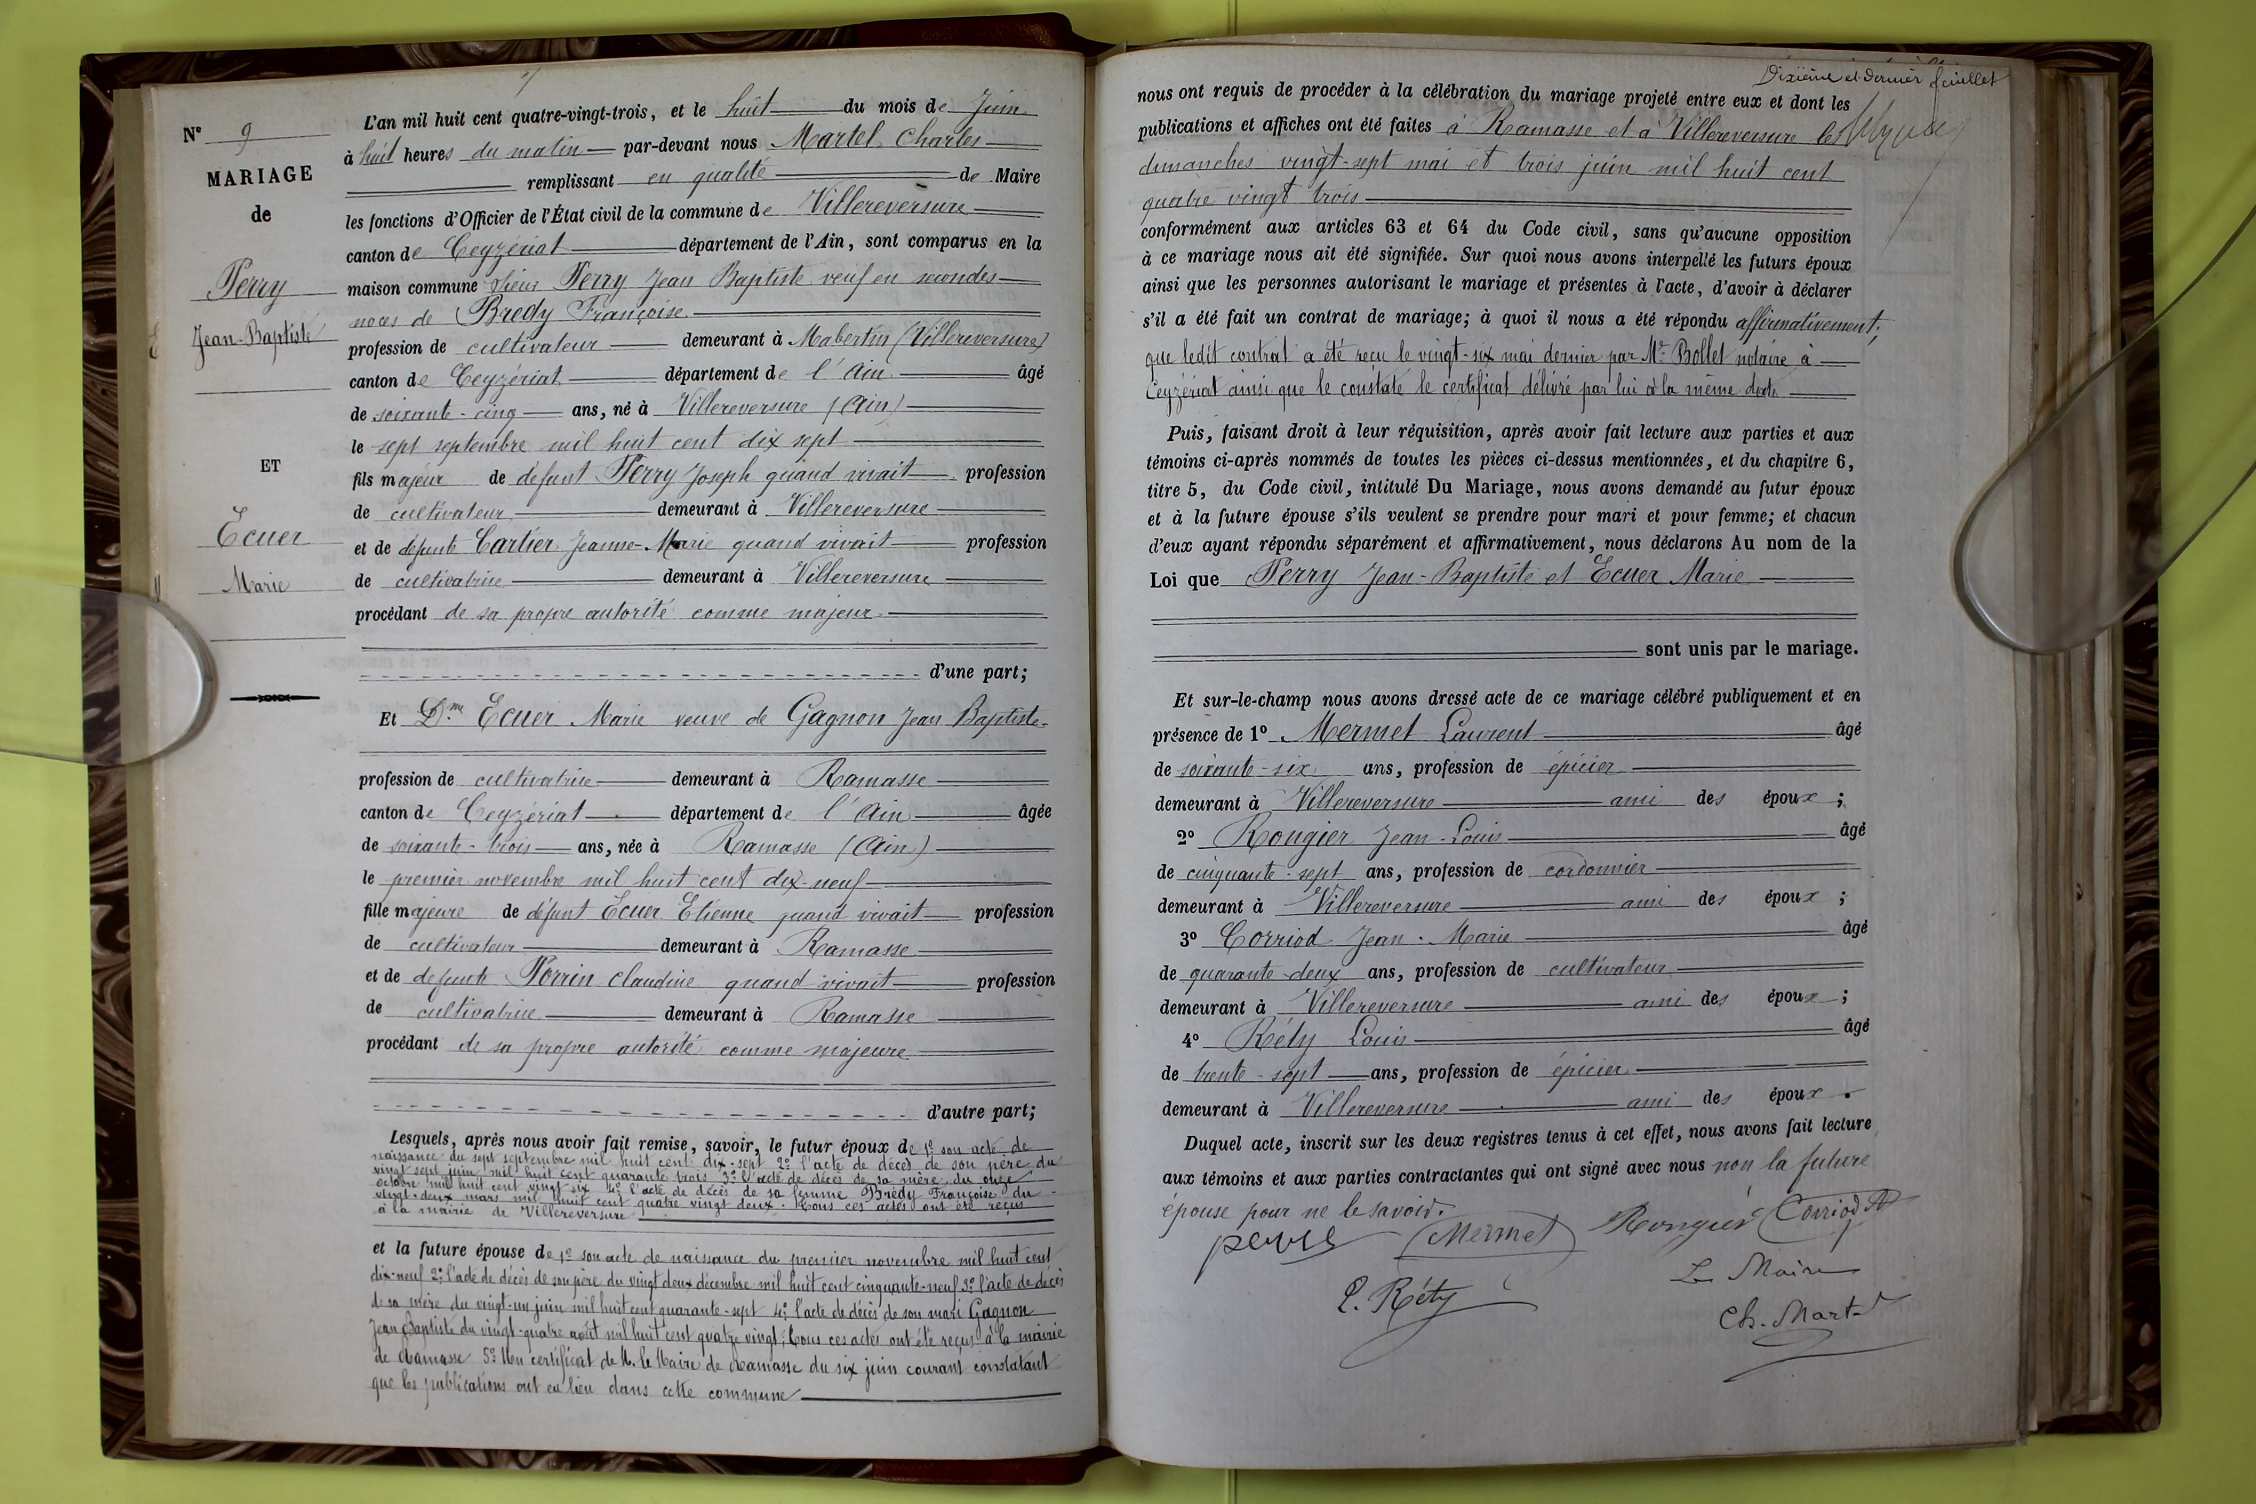 N° 9
MARIAGE
de
Perry
Jean-Baptiste
ET
Ecuer
Marie
L'an mil huit cent quatre-vingt-trois, et le huit du mois de Juin
à huit heures du matin par-devant nous Martel Charles
remplissant en qualité de Maire
les fonctions d'Officier de l'État civil de la commune de Villereversure
canton de Ceyzériat département de l'Ain, sont comparus en la
maison commune Sieur Perry Jean Baptiste veuf en secondes
noces de Bredy Françoise
profession de cultivateur demeurant à Mabertin (Villereversure)
canton de Ceyzériat département de l'Ain âgé
de soixante-cinq ans, né à Villereversure (Ain)
le sept septembre mil huit cent dix sept
fils majeur de défunt Perry Joseph quand vivait profession
de cultivateur demeurant à Villereversure
et de défunte Cartier Jeanne-Marie quand vivait profession
de cultivatrice demeurant à Villereversure
procédant de sa propre autorité comme majeur
d'une part;
Et Dme Ecuer Marie veuve de Gagnon Jean Baptiste
profession de cultivatrice demeurant à Ramasse
canton de Ceyzériat département de l'Ain âgée
de soixante-trois ans, née à Ramasse (Ain)
le premier novembre mil huit cent dix-neuf
fille majeure de défunt Ecuer Etienne quand vivait profession
de cultivateur demeurant à Ramasse
et de défunte Perrin Claudine quand vivait profession
de cultivatrice demeurant à Ramasse
procédant de sa propre autorité comme majeure
d'autre part;
Lesquels, après nous avoir fait remise, savoir, le futur époux de 1° son acte de
naissance du sept septembre mil huit cent dix-sept 2° l'acte de décès de son père du
vingt sept juin mil huit cent quarante trois 3° l'acte de décès de sa mère du onze
octobre mil huit cent vingt six 4° l'acte de décès de sa femme Brédy Françoise du
vingt-deux mars mil huit cent quatre vingt deux. Tous ces actes ont été reçus
à la mairie de Villereversure
et la future épouse de 1° son acte de naissance du premier novembre mil huit cent
dix-neuf 2° l'acte de décès de son père du vingt deux décembre mil huit cent cinquante-neuf 3° l'acte de décès
de sa mère du vingt-un juin mil huit cent quarante-sept 4° l'acte de décès de son mari Gagnon
Jean Baptiste du vingt-quatre août mil huit cent quatre vingt; tous ces actes ont été reçus à la mairie
de Ramasse 5° Un certificat de M. le Maire de Ramasse du six juin courant constatant
que les publications ont eu lieu dans cette commune
Dixième et dernier feuillet
nous ont requis de procéder à la célébration du mariage projeté entre eux et dont les
publications et affiches ont été faites à Ramasse et à Villereversure les
dimanches vingt-sept mai et trois juin mil huit cent
quatre vingt trois
conformément aux articles 63 et 64 du Code civil, sans qu'aucune opposition
à ce mariage nous ait été signifiée. Sur quoi nous avons interpellé les futurs époux
ainsi que les personnes autorisant le mariage et présentes à l'acte, d'avoir à déclarer
s'il a été fait un contrat de mariage; à quoi il nous a été répondu affirmativement;
que ledit contrat a été reçu le vingt-six mai dernier par Me Bollet notaire à
Ceyzériat ainsi que le constate le certificat délivré par lui à la même date
Puis, faisant droit à leur réquisition, après avoir fait lecture aux parties et aux
témoins ci-après nommés de toutes les pièces ci-dessus mentionnées, et du chapitre 6,
titre 5, du Code civil, intitulé Du Mariage, nous avons demandé au futur époux
et à la future épouse s'ils veulent se prendre pour mari et pour femme; et chacun
d'eux ayant répondu séparément et affirmativement, nous déclarons Au nom de la
Loi que Perry Jean-Baptiste et Ecuer Marie
sont unis par le mariage.
Et sur-le-champ nous avons dressé acte de ce mariage célébré publiquement et en
présence de 1° Mermet Laurent âgé
de soixante-six ans, profession de épicier
demeurant à Villereversure ami des époux;
2° Rougier Jean-Louis âgé
de cinquante-sept ans, profession de cordonnier
demeurant à Villereversure ami des époux;
3° Corriod Jean-Marie âgé
de quarante-deux ans, profession de cultivateur
demeurant à Villereversure ami des époux;
4° Réty Louis âgé
de trente-sept ans, profession de épicier
demeurant à Villereversure ami des époux.
Duquel acte, inscrit sur les deux registres tenus à cet effet, nous avons fait lecture
aux témoins et aux parties contractantes qui ont signé avec nous non la future
épouse pour ne le savoir.
Mermet Rougier Corriod
L. Réty Le Maire
Ch. Martel